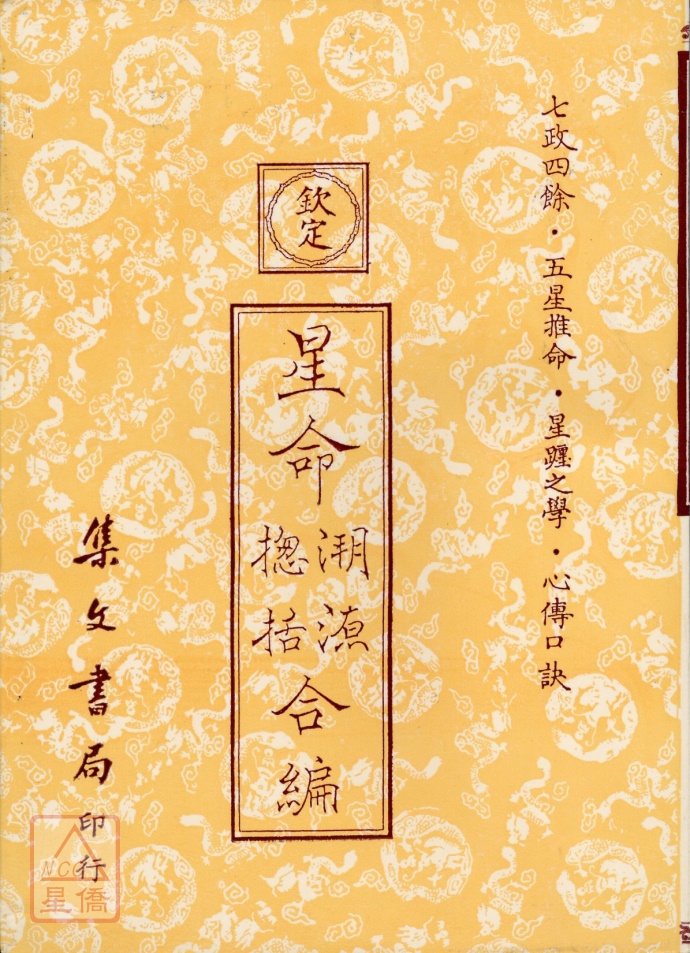 七政四餘・五星推命・星躔之學・心傳口訣
欽定
星命
溯源
揔括
合編
集文書局印行
NCC
星僑